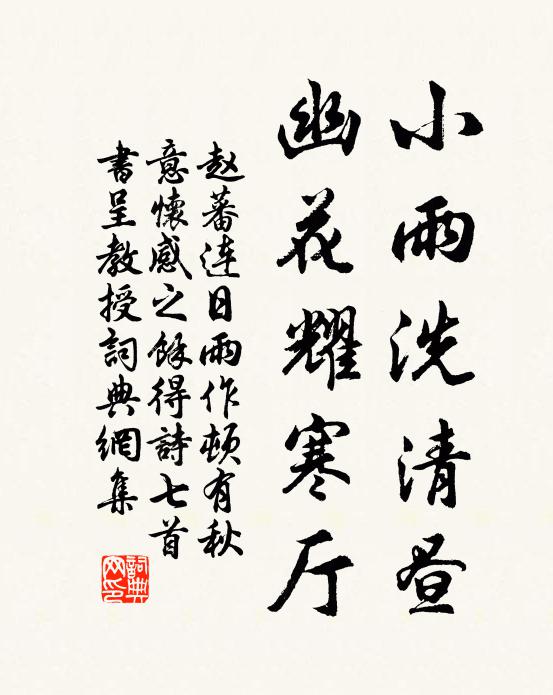 小雨洗清昼
幽花耀寒厅
赵蕃連日雨作頓有秋
意懷感之餘得詩七首
書呈教授詞典網集
詞典网印